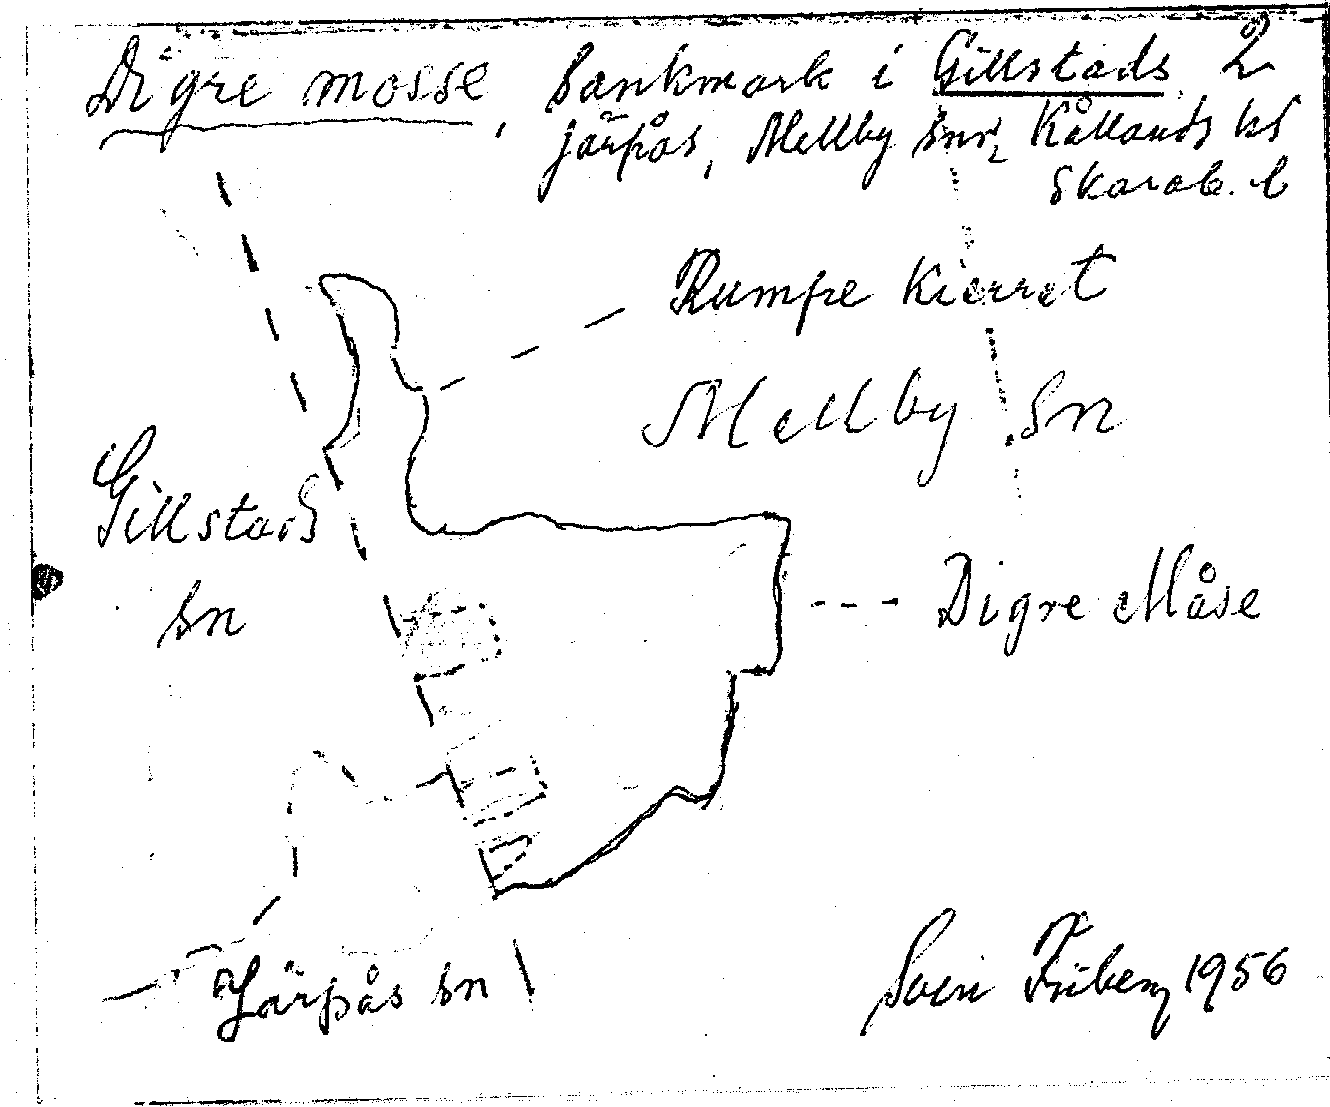 Digre mosse, Sankmark i Gillstads 2
Järpås, Mellby snr, Kållands hd
Skarab. l
Rumpe Kierret
Mellby Sn
Gillstads
sn
Digre Måse
Järpås sn
Sven Friberg 1956